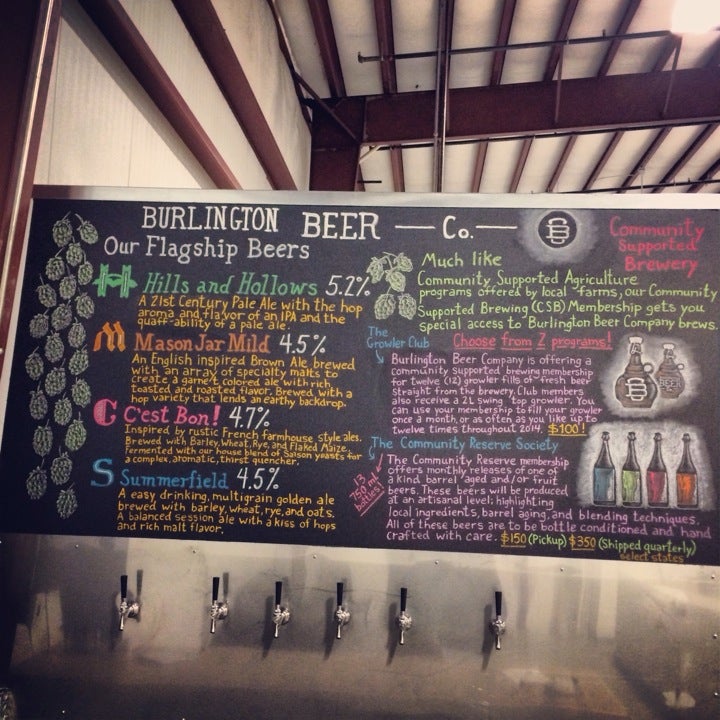 BURLINGTON BEER — Co. —
Our Flagship Beers
Hills and Hollows 5.2%
A 21st Century Pale Ale with the hop
aroma and flavor of an IPA and the
quaff-ability of a pale ale.
Mason Jar Mild 4.5%
An English inspired Brown Ale brewed
with an array of specialty malts to
create a garnet colored ale with rich
toasted and roasted flavor. Brewed with a
hop variety that lends an earthy backdrop.
C'est Bon! 4.7%
Inspired by rustic French farmhouse style ales.
Brewed with Barley, Wheat, Rye, and Flaked Maize.
Fermented with our house blend of Saison yeasts for
a complex, aromatic, thirst quencher.
Summerfield 4.5%
A easy drinking, multigrain golden ale
brewed with barley, wheat, rye, and oats.
A balanced session ale with a kiss of hops
and rich malt flavor.
Community
Supported
Brewery
Much like
Community Supported Agriculture
programs offered by local farms, our Community
Supported Brewing (CSB) Membership gets you
special access to Burlington Beer Company brews.
Choose from 2 programs!
The
Growler Club
Burlington Beer Company is offering a
community supported brewing membership
for twelve (12) growler fills of fresh beer
straight from the brewery. Club members
also receive a 2L swing top growler. You
can use your membership to fill your growler
once a month, or as often as you like up to
twelve times throughout 2014. $100!
The Community Reserve Society
13
750 ml
bottles!
The Community Reserve membership
offers monthly releases of one of
a kind barrel aged and/or fruit
beers. These beers will be produced
at an artisanal level; highlighting
local ingredients, barrel aging, and blending techniques.
All of these beers are to be bottle conditioned and hand
crafted with care. $150 (Pickup) $350 (Shipped quarterly)
select states